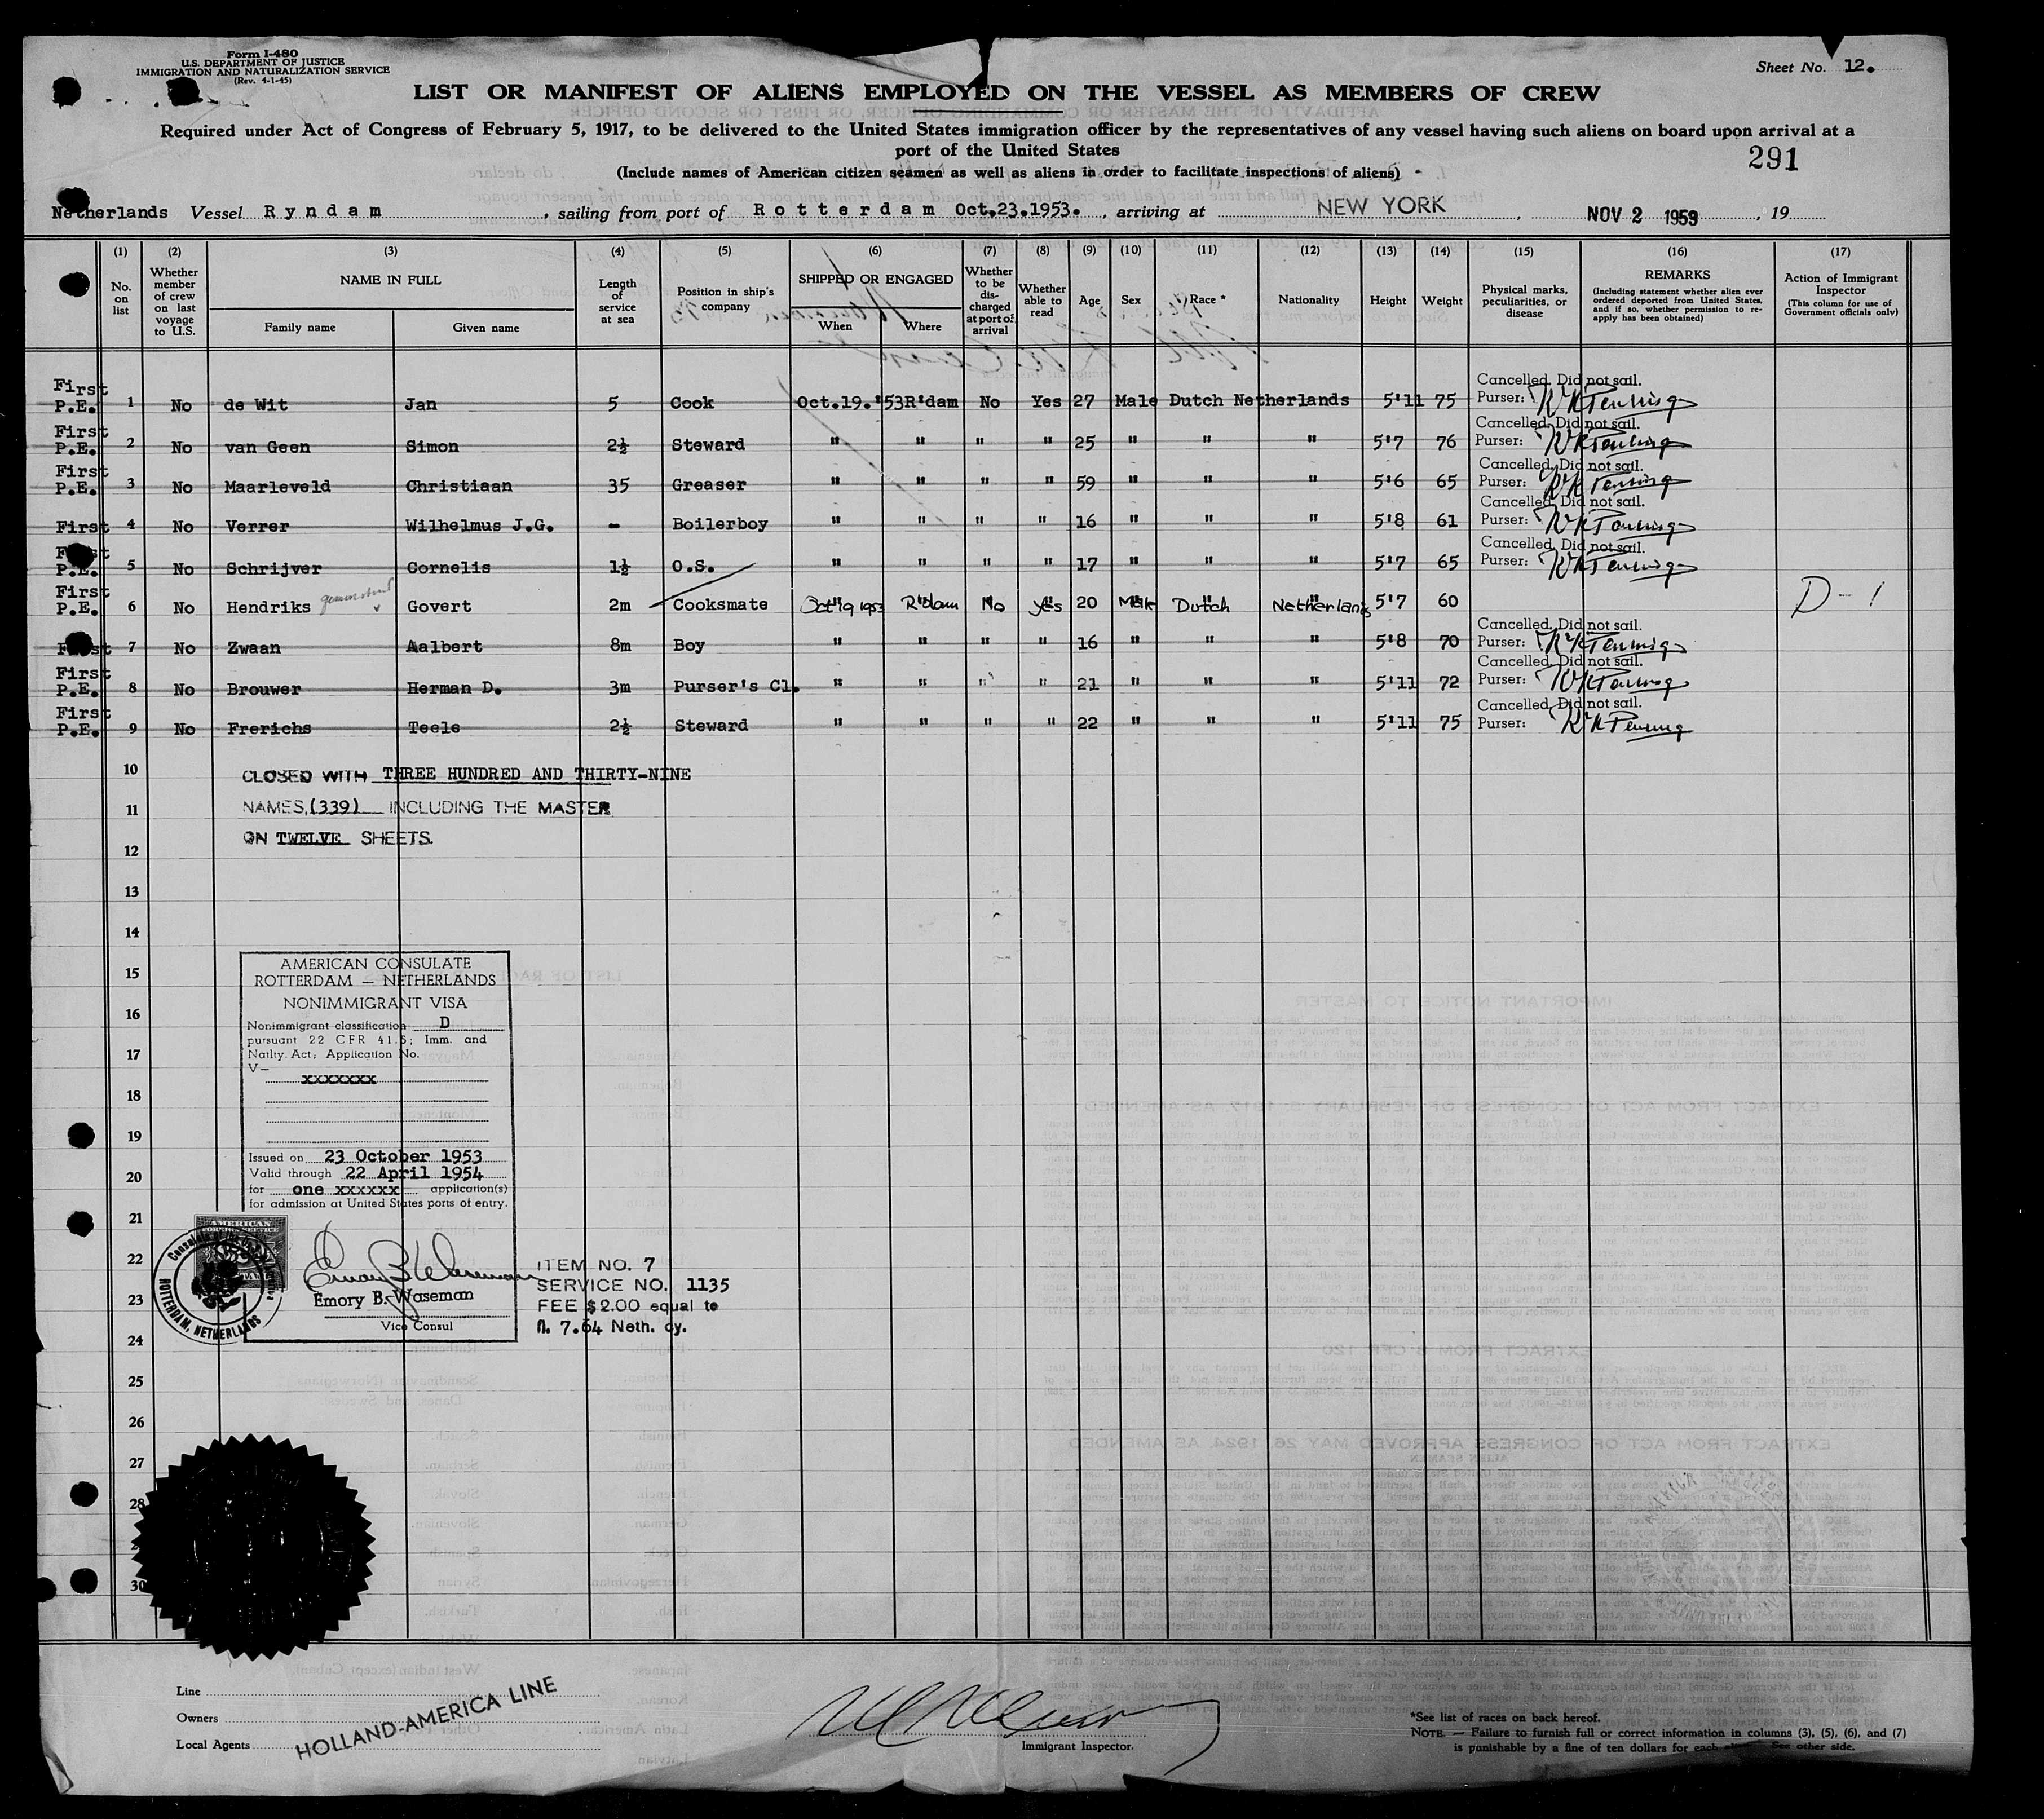 Form I-480
U.S. DEPARTMENT OF JUSTICE
IMMIGRATION AND NATURALIZATION SERVICE
(Rev. 4-1-45)
Sheet No. 12.
LIST OR MANIFEST OF ALIENS EMPLOYED ON THE VESSEL AS MEMBERS OF CREW
Required under Act of Congress of February 5, 1917, to be delivered to the United States immigration officer by the representatives of any vessel having such aliens on board upon arrival at a
port of the United States
291
(Include names of American citizen seamen as well as aliens in order to facilitate inspections of aliens)
Netherlands Vessel Ryndam, sailing from port of Rotterdam Oct.23.1953., arriving at NEW YORK, NOV 2 1953, 19
(1) (2) (3) (4) (5) (6) (7) (8) (9) (10) (11) (12) (13) (14) (15) (16) (17)
No. on list
Whether member of crew on last voyage to U.S.
NAME IN FULL
Family name
Given name
Length of service at sea
Position in ship's company
SHIPPED OR ENGAGED
When
Where
Whether to be discharged at port of arrival
Whether able to read
Age
Sex
Race *
Nationality
Height
Weight
Physical marks, peculiarities, or disease
REMARKS
(Including statement whether alien ever ordered deported from United States, and if so, whether permission to reapply has been obtained)
Action of Immigrant Inspector
(This column for use of Government officials only)
First P.E. 1 No de Wit Jan 5 Cook Oct.19.'53 R'dam No Yes 27 Male Dutch Netherlands 5'11 75 Cancelled. Did not sail. Purser:
First P.E. 2 No van Geen Simon 2½ Steward " " " " 25 " " " 5'7 76 Cancelled. Did not sail. Purser:
First P.E. 3 No Maarleveld Christiaan 35 Greaser " " " " 59 " " " 5'6 65 Cancelled. Did not sail. Purser:
First 4 No Verrer Wilhelmus J.G. - Boilerboy " " " " 16 " " " 5'8 61 Cancelled. Did not sail. Purser:
First P.E. 5 No Schrijver Cornelis 1½ O.S. " " " " 17 " " " 5'7 65 Cancelled. Did not sail. Purser:
First P.E. 6 No Hendriks Govert 2m Cooksmate Oct 19 1953 R'dam No Yes 20 Male Dutch Netherlands 5'7 60 D-1
First 7 No Zwaan Aalbert 8m Boy " " " " 16 " " " 5'8 70 Cancelled. Did not sail. Purser:
First P.E. 8 No Brouwer Herman D. 3m Purser's Cl. " " " " 21 " " " 5'11 72 Cancelled. Did not sail. Purser:
First P.E. 9 No Frerichs Teele 2½ Steward " " " " 22 " " " 5'11 75 Cancelled. Did not sail. Purser:
10 CLOSED WITH THREE HUNDRED AND THIRTY-NINE
11 NAMES,(339) INCLUDING THE MASTER
12 ON TWELVE SHEETS.
13
14
15
16
17
18
19
20
21
22
23
24
25
26
27
28
30
AMERICAN CONSULATE
ROTTERDAM — NETHERLANDS
NONIMMIGRANT VISA
Nonimmigrant classification D
pursuant 22 CFR 41.5; Imm. and
Natlty. Act; Application No.
V— xxxxxxx
Issued on 23 October 1953
Valid through 22 April 1954
for one xxxxxx application(s)
for admission at United States ports of entry.
AMERICAN
FOREIGN SERVICE
ROTTERDAM, NETHERLANDS
Emory B. Waseman
Emory B. Waseman
Vice Consul
ITEM NO. 7
SERVICE NO. 1135
FEE $2.00 equal to
fl. 7.64 Neth. cy.
Line
Owners
Local Agents
HOLLAND-AMERICA LINE
Immigrant Inspector.
*See list of races on back hereof.
NOTE. — Failure to furnish full or correct information in columns (3), (5), (6), and (7)
is punishable by a fine of ten dollars for each See other side.